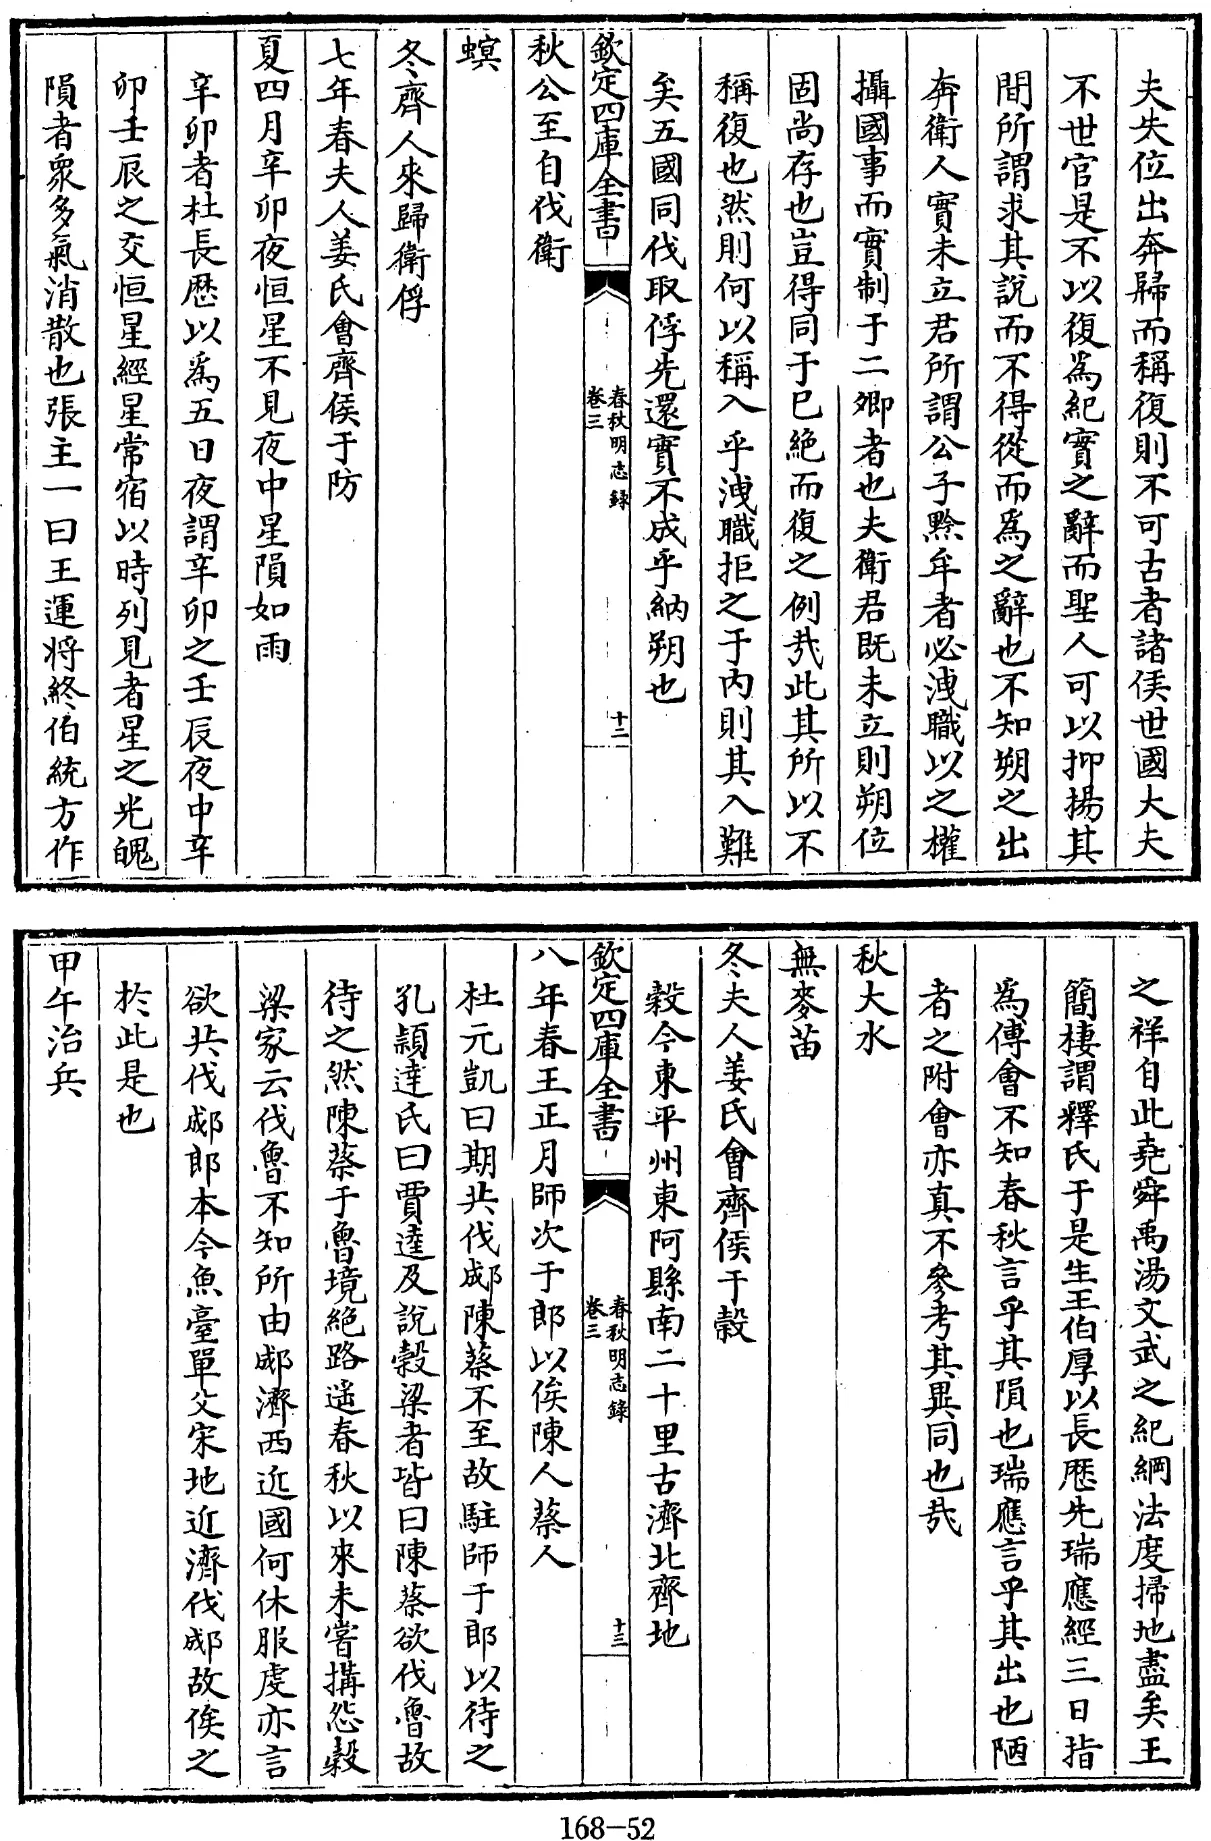 夫失位出奔歸而稱復則不可古者諸侯世國大夫
不世官是不以復為紀實之辭而聖人可以抑揚其
間所謂求其說而不得從而為之辭也不知朔之出
奔衛人實未立君所謂公子黔牟者必洩職以之權
攝國事而實制于二卿者也夫衛君既未立則朔位
固尚存也豈得同于已絶而復之例㢤此其所以不
稱復也然則何以稱入乎洩職拒之于内則其入難
矣五國同伐取俘先還實不成乎納朔也
欽定四庫全書
春秋明志録
卷三
十二
秋公至自伐衛
螟
冬齊人來歸衛俘
七年春夫人姜氏會齊侯于防
夏四月辛卯夜恒星不見夜中星隕如雨
辛卯者杜長厯以為五日夜謂辛卯之壬辰夜中辛
卯壬辰之交恒星經星常宿以時列見者星之光魄
隕者衆多氣消散也張主一曰王運将終伯統方作
之祥自此堯舜禹湯文武之紀綱法度掃地盡矣王
簡棲謂釋氏于是生王伯厚以長厯先瑞應經三日指
為傅會不知春秋言乎其隕也瑞應言乎其出也陋
者之附會亦真不參考其異同也㢤
秋大水
無麥苗
冬夫人姜氏會齊侯于榖
榖今東平州東阿縣南二十里古濟北齊地
欽定四庫全書
春秋明志録
卷三
十三
八年春王正月師次于郎以俟陳人蔡人
杜元凱曰期共伐郕陳蔡不至故駐師于郎以待之
孔穎達氏曰賈逵及說榖梁者皆曰陳蔡欲伐魯故
待之然陳蔡于魯境絶路遥春秋以來未嘗搆怨榖
梁家云伐魯不知所由郕濟西近國何休服虔亦言
欲共伐郕郎本今魚臺單父宋地近濟伐郕故俟之
於此是也
甲午治兵
168-52